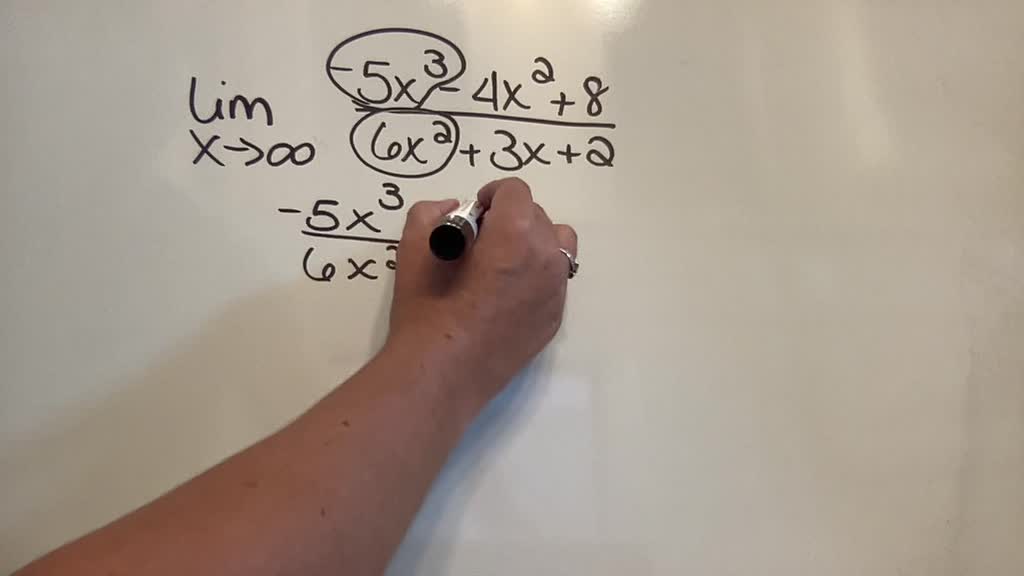 lim -5x³ - 4x² + 8
x→∞ 6x² + 3x + 2
-5x³
6x²